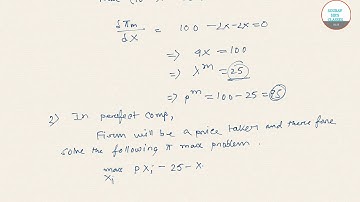 dπm/dX = 100 - 2x - 2x = 0
=> 4x = 100
=> x^m = 25
=> p^m = 100 - 25 = 75
2) In perfect comp,
Firm will be a price taker and there fore
solve the following π max problem.
max p xi - 25 - x
xi